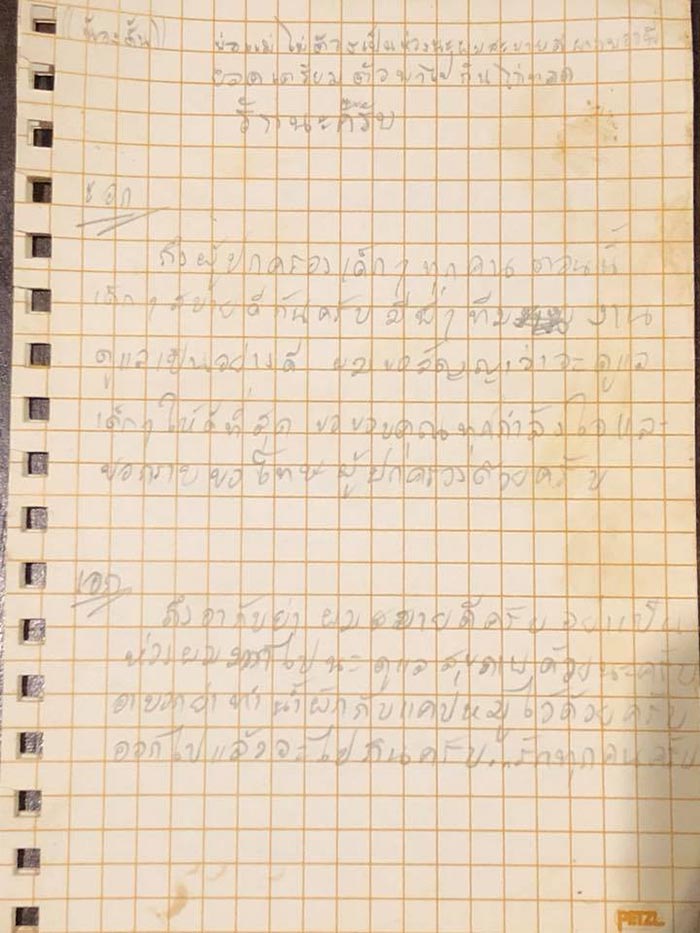 (น้องตั้น) พ่อแม่ไม่ต้องเป็นห่วงนะผมสบายดี
ยอดเตรียมตัวพาไปกินไก่ทอด
รักนะครับ
เอก
ถึงผู้ปกครองเด็กๆทุกคน ตอนนี้
เด็กๆสบายดีกันครับ มีพี่ๆทีม งาน
ดูแลเป็นอย่างดี ผมขอสัญญาว่าจะดูแล
เด็กๆให้ดีที่สุด ขอขอบคุณทุกกำลังใจและ
ขอกราบขอโทษผู้ปกครองด้วยครับ
เอก
ถึงอากับย่า ผมสบายดีครับ อย่าเป็น
ห่วงผมมากไปนะ ดูแลสุขภาพด้วยนะครับ
อาบอกย่าทำน้ำผักกับแคปหมูไว้ด้วยครับ
ออกไปแล้วจะไปกินครับ..รักทุกคนครับ
PETZL